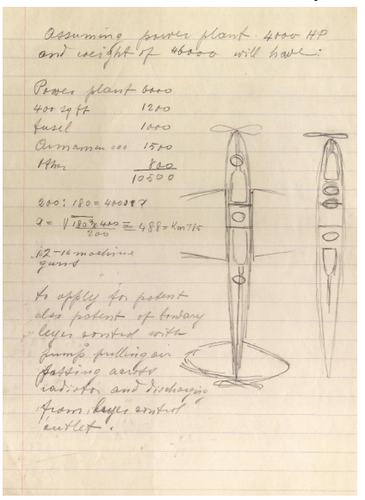 Assuming power plant 4000 HP
and weight of will have:
Power plant 6000
400 sq ft 1200
fusel 1000
1500
800
10500
200 : 180 =
= 488 = Km 785
12 - machine
guns
to apply for patent
also patent of
layer control with
pump pulling air
passing across
radiator and discharging
from layer control
outlet.